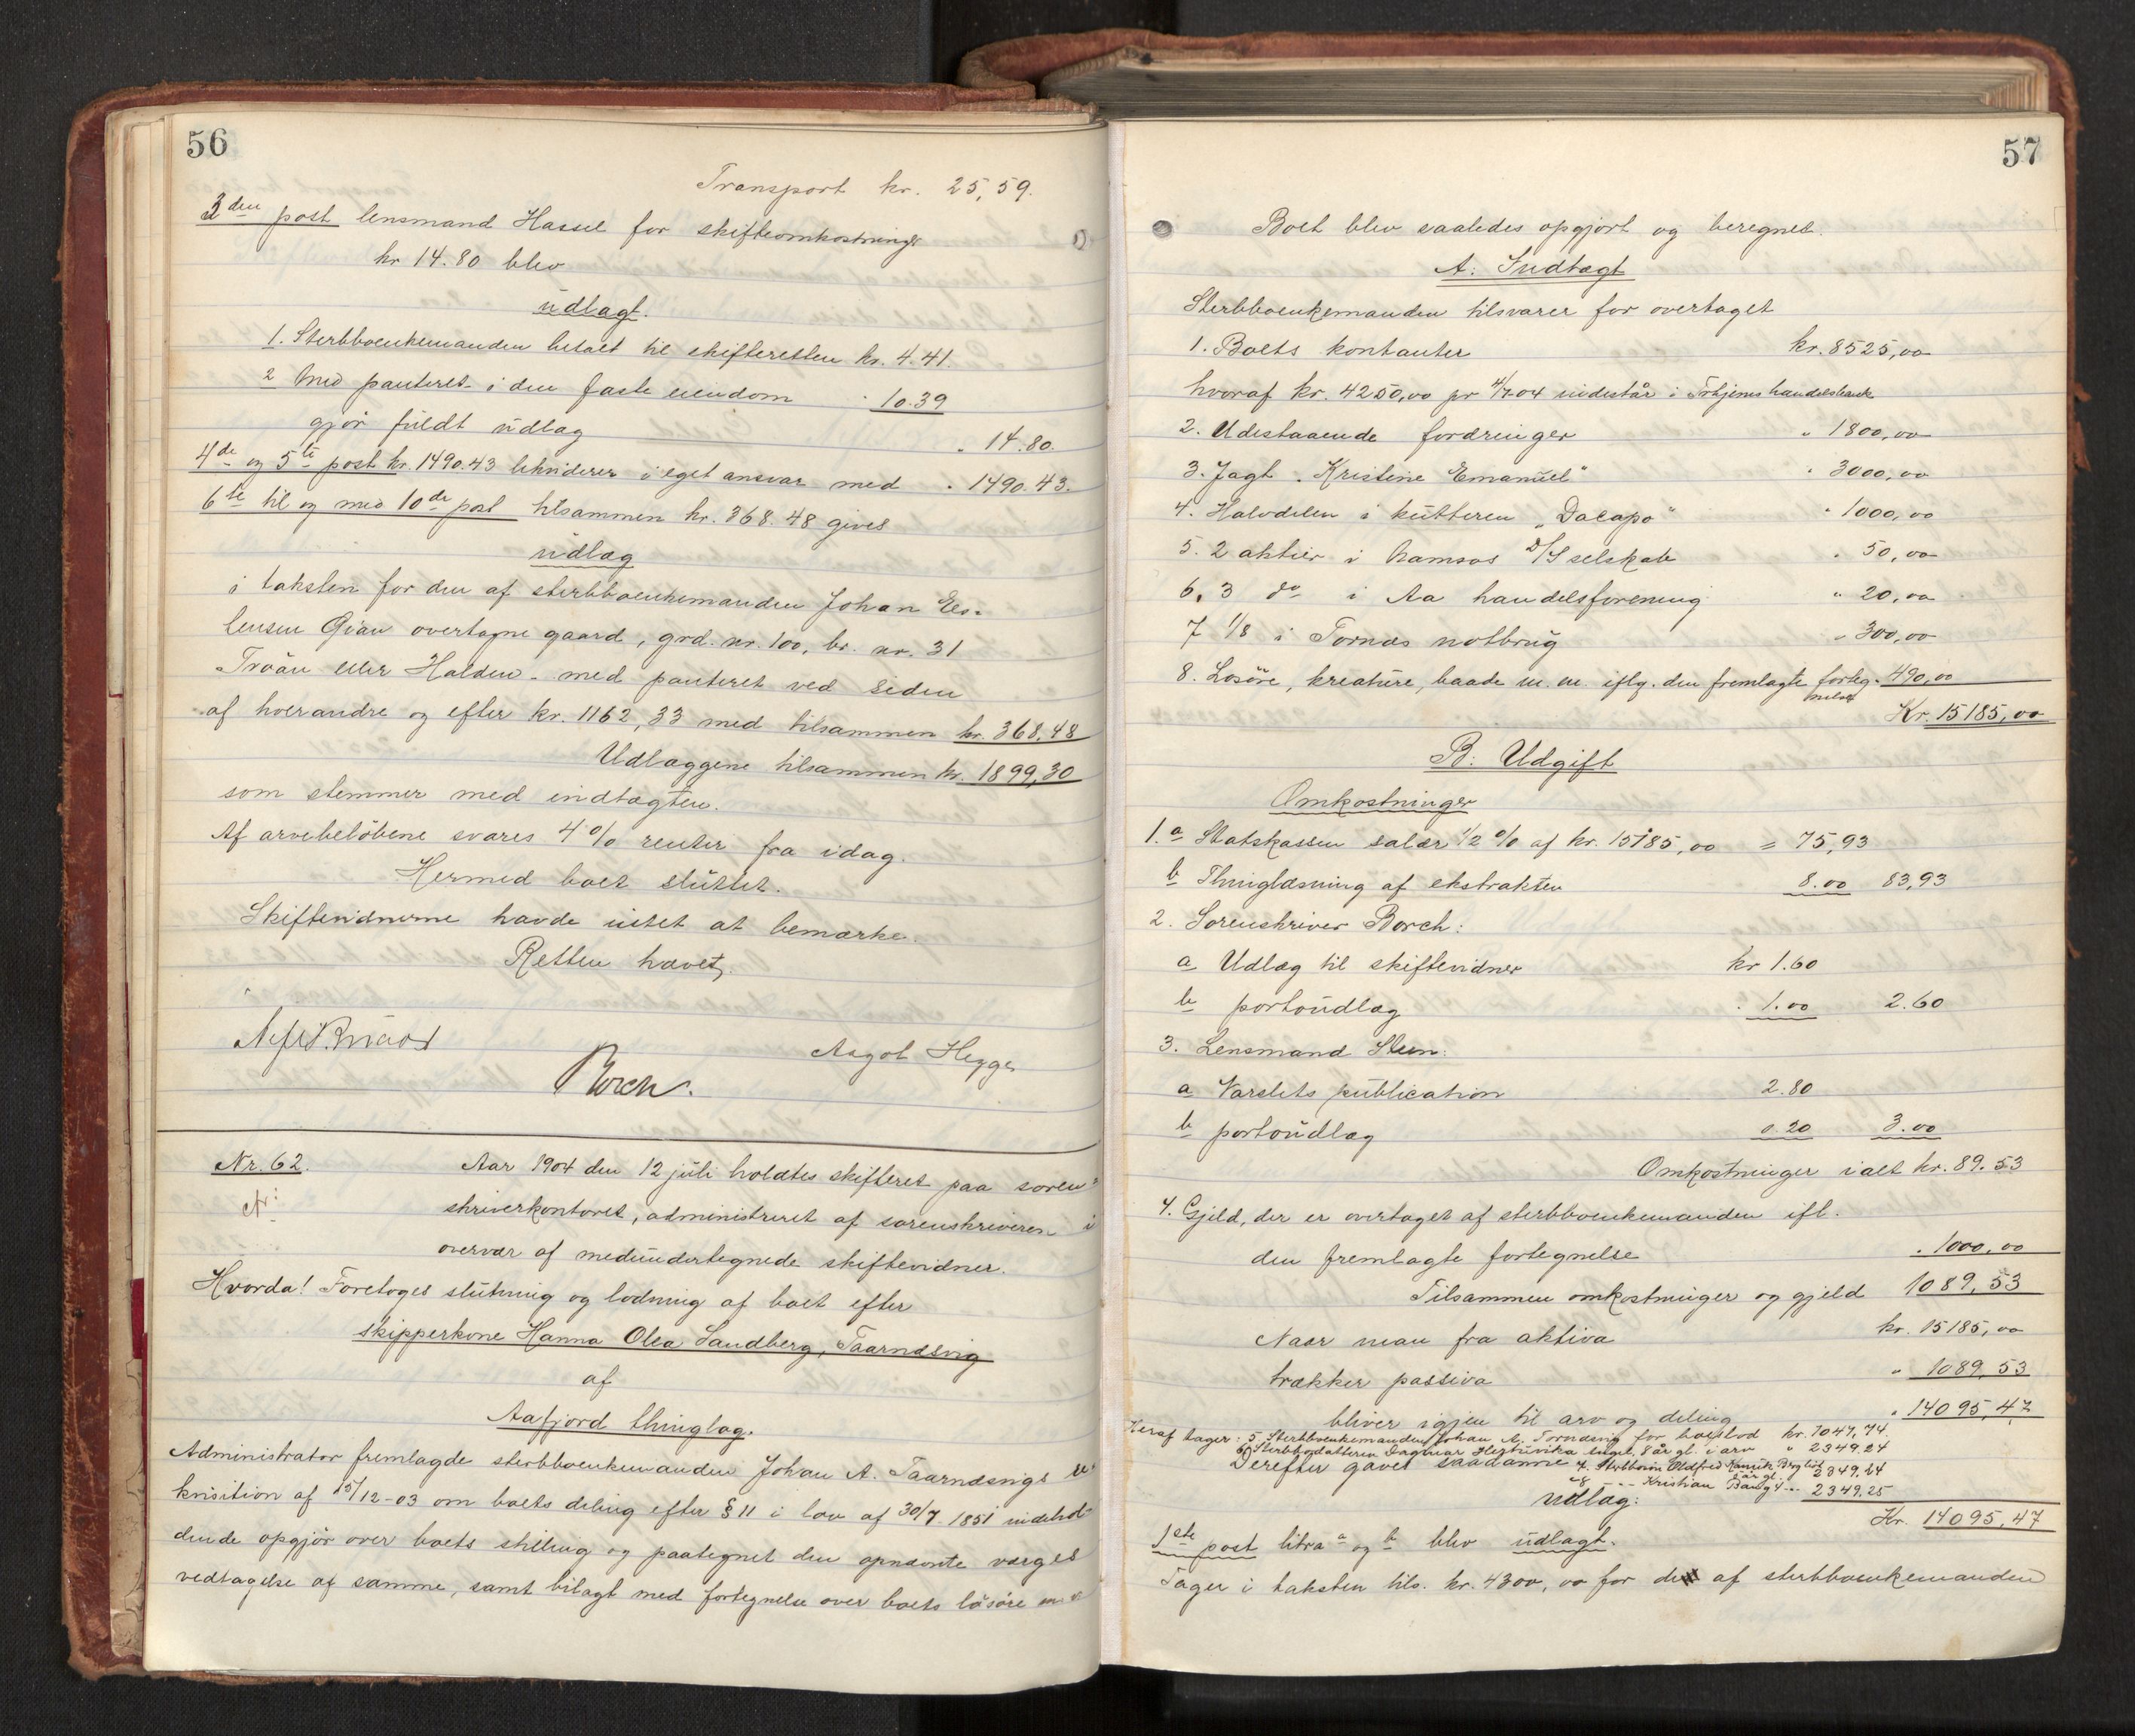 56
Transport kr. 25,59.
3den post lensmand Hassel for skifteomkostninger
kr 14.80 blev
udlagt.
1. Sterbboenkemanden betalt til skifteretten kr. 4.41.
2 Med panteret i den faste eiendom " 10.39
gjør fuldt udlag " 14.80.
4de og 5te post kr. 1490.43 likviderer i eget ansvar med " 1490.43.
6te til og med 10de post tilsammen kr. 368.48 gives
udlæg
i taksten for den af sterbboenkemanden Johan
overtagne gaard, grd. nr. 100, br. nr. 31
eller Halden - med panteret ved siden
af hverandre og efter kr. 1162,33 med tilsammen kr. 368,48
Udlæggene tilsammen kr. 1899,30
som stemmer med indtægten.
Af arvebeløbene svares 4 % renter fra idag.
Hermed boet sluttet.
Skiftevidnerne havde intet at bemærke.
Retten hævet.
Aagot Hegge
Borch.
Nr. 62. Aar 1904 den 12 juli holdtes skifteret paa soren-
skriverkontoret, administreret af sorenskriveren i
overvær af medundertegnede skiftevidner.
Hvorda! Foretoges slutning og lodning af boet efter
skipperkone Hanna Olea Sandberg, Taarnæsvig
af
Aafjord thinglag.
Administrator fremlagde sterbboenkemanden Johan A. Taarnæsvigs re-
kvisition af 15/12-03 om boets deling efter § 11 i lov af 30/7 1851 indehol-
dende opgjør over boets stilling og paategnet den opnævnte værges
vedtagelse af samme, samt bilagt med fortegnelse over boets løsøre
57
Boet blev saaledes opgjort og beregnet.
A. Indtægt
Sterbboenkemanden tilsvarer for overtaget
1. Boets kontanter kr. 8525,00
hvoraf kr. 4250,00 pr 4/7 04 indestår i Trhjems handelsbank
2. Udestaaende fordringer " 1800,00
3. Jagt "Kristine Emanuel" " 3000,00
4. Halvdelen i kutteren "Dacapo" " 1000,00
5. 2 aktier i Namsos D/S selskab " 50,00
6. 3 do i Aa handelsforening " 20,00
7 1/8 i Tornæs notbrug " 300,00
8. Løsøre, kreature, baade m. m. iflg. den fremlagte forteg- 490,00
nelse
Kr. 15185,00
B. Udgift
Omkostninger
1.a Statskassen salær 1/2 % af kr. 15185,00 = 75,93
b Thinglæsning af ekstrakten 8.00 83,93
2. Sorenskriver Borch:
a Udlæg til skiftevidner kr 1.60
b portoudlæg " 1.00 2.60
3. Lensmand Steen:
a Varslets publication 2.80
b portoudlæg 0.20 3.00
Omkostninger ialt kr. 89.53
4. Gjeld, der er overtaget af sterbboenkemanden ifl.
den fremlagte fortegnelse " 1000,00
Tilsammen omkostninger og gjeld 1089,53
Naar man fra aktiva kr. 15185,00
trækker passiva " 1089,53
bliver igjen til arv og deling " 14095,47
Heraf tager: 5. Sterbboenkemanden Johan A. Tornæsvig for boeslod kr. 7047,74.
6) Sterbbodatteren Dagmar 8 år gl. i arv " 2349.24
Derefter gaves saadanne 7. Sterbbosøn 2349.24
8. Kristian 2349.25
udlæg: Kr. 14095,47
1ste post litra a og b blev udlagt.
Tager i taksten tils. kr. 4300,00 for de af sterbboenkemanden